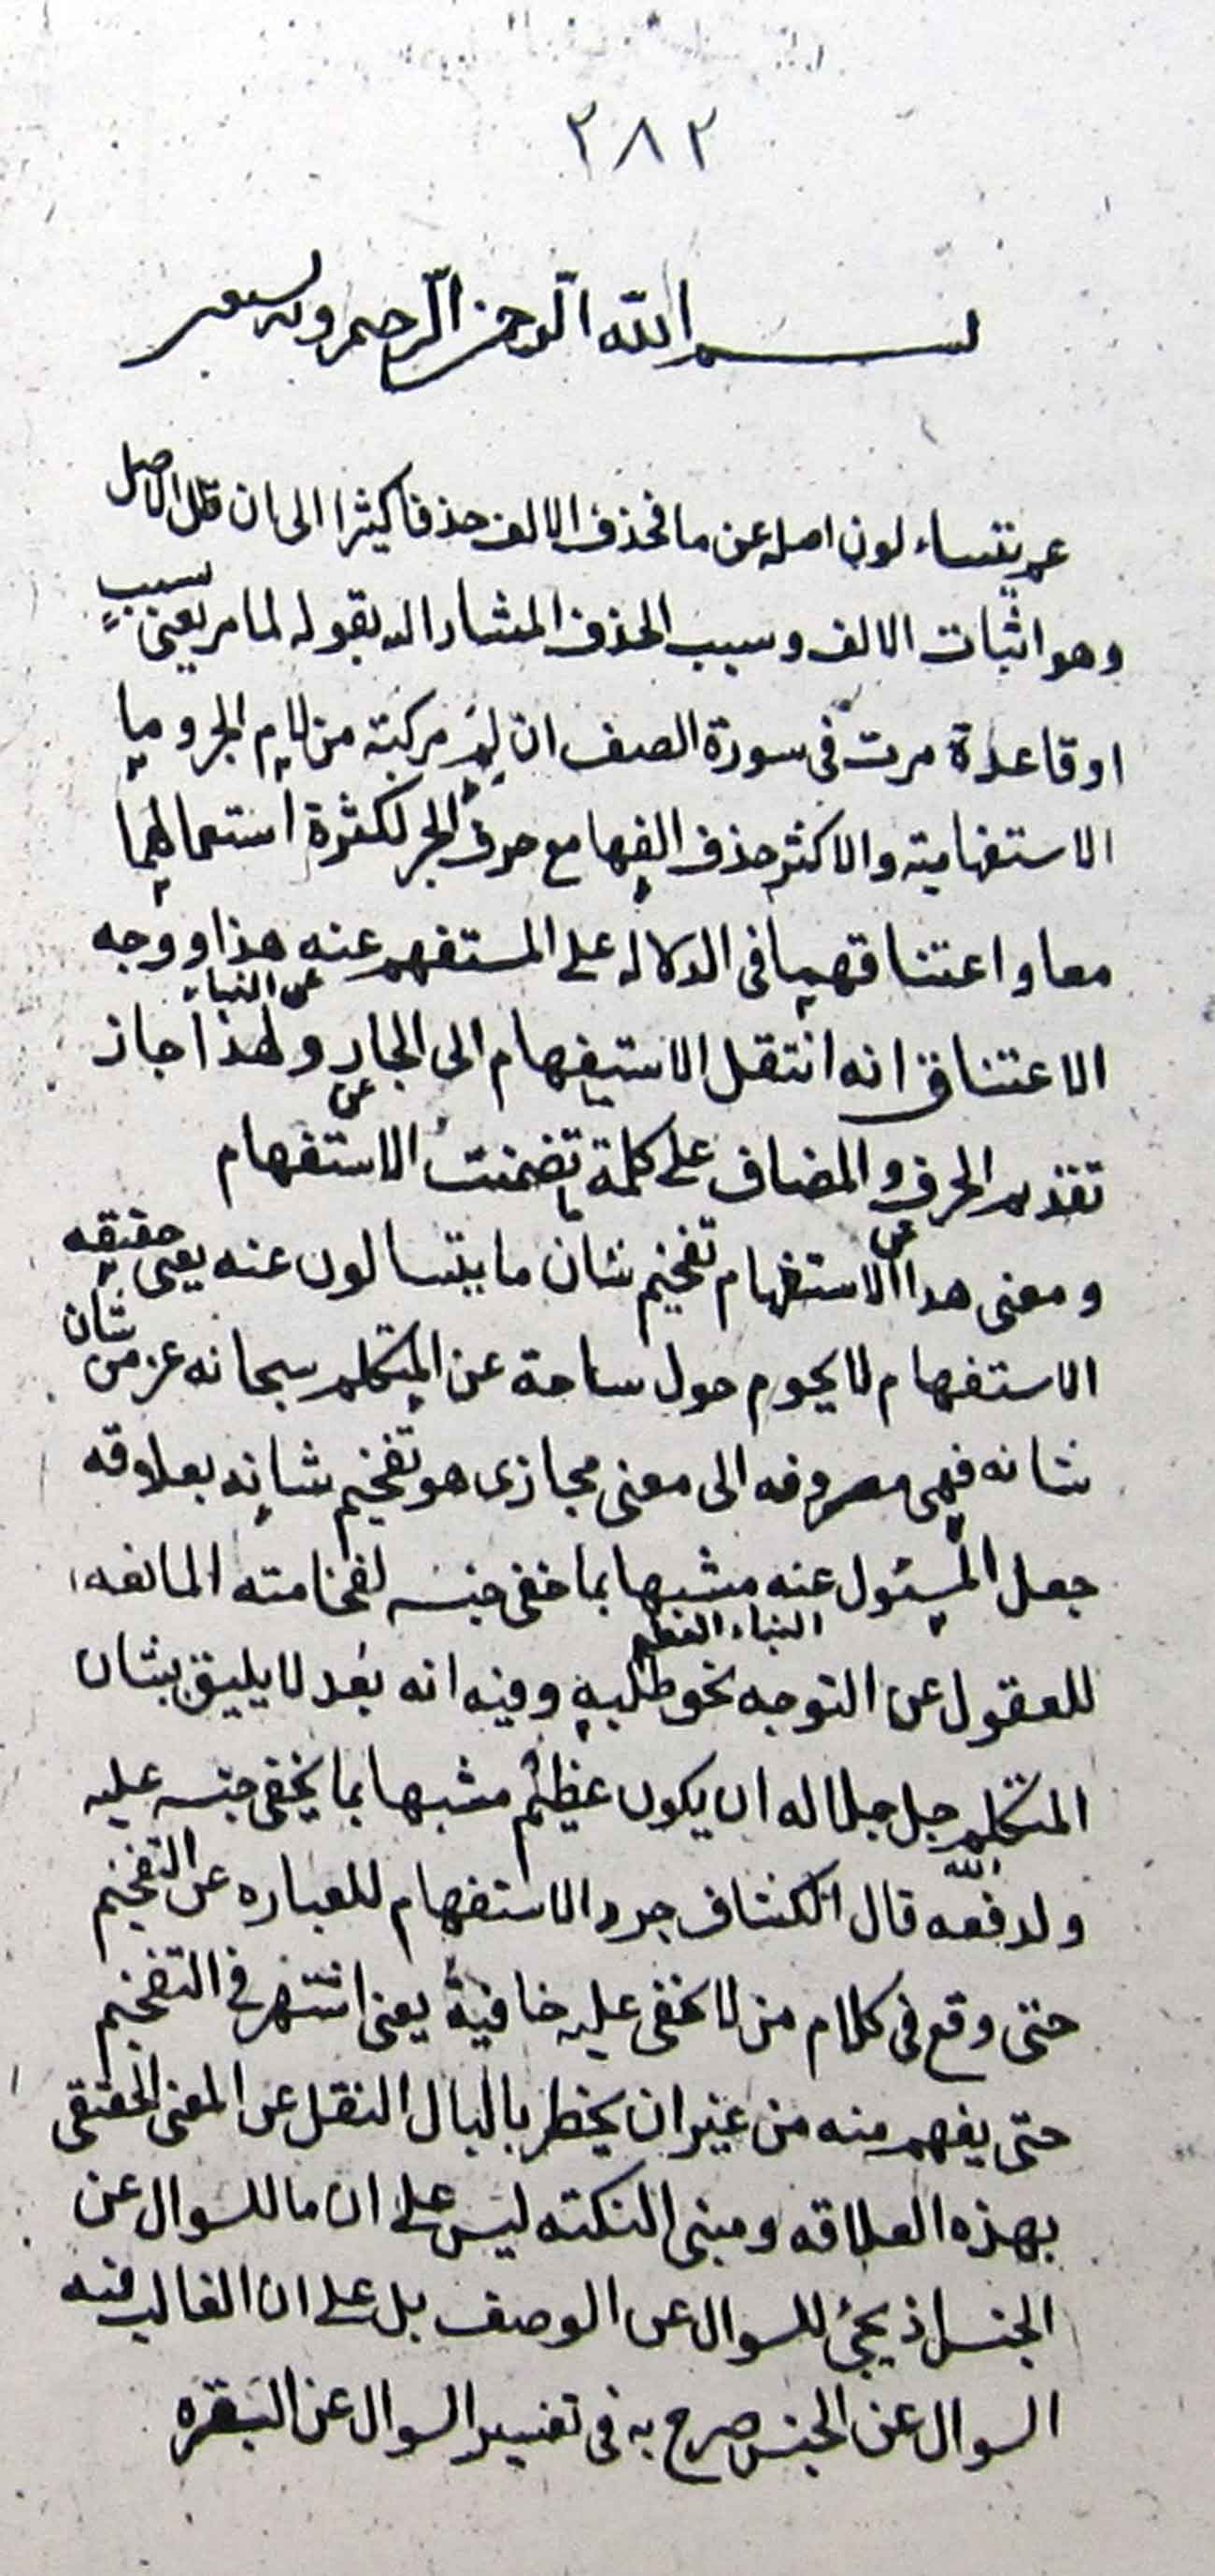 ٢٨٢
بسم الله الرحمن الرحيم وبه نستعين
عم يتساءلون اصله عن ما فحذف الالف حذفا كثيرا الى ان قل الاصل
وهو اثبات الالف وسبب الحذف المشار اليه بقوله لما مر يعنى سبب
او قاعدة مرت فى سورة الصف ان لم مركبة من لام الجر و ما
الاستفهامية والاكثر حذف الفها مع حرف الجر لكثرة استعمالهما
معا واعتناقهما فى الدلاله على المستفهم عنه هذا ووجه
عن النباء
الاعتناق انه انتقل الاستفهام الى الجار ولهذا جاز
عن
تقديم الحرف والمضاف على كلمة تضمنت الاستفهام
عن
ومعنى هذا الاستفهام تفخيم شان ما يتسالون عنه يعنى حقيقه
الاستفهام لا يحوم حول ساحة عن المتكلم سبحانه عز من شان
شانه فهى مصروفه الى معنى مجازى هو تفخيم شانه بعلاقه
جعل المسئول عنه مشبها بما خفى جنسه لفخامته المانعه
النباء العظيم
للعقول عن التوجه نحو طلبه وفيه انه بعد لا يليق بشان
المتكلم جل جلاله ان يكون عظيم مشبها بما يخفى جنسه عليه
الله
ولدفعه قال الكشاف جرد الاستفهام للعباره عن التفخيم
حتى وقع فى كلام من لا تخفى عليه خافية يعنى اشتهر فى التفخيم
حتى يفهم منه من غير ان يخطر بالبال النقل عن المعنى الحقيقى
بهذه العلاقه ومبنى النكته ليس على ان ما للسوال عن
الجنس اذ يجئ للسوال عن الوصف بل على ان الغالب فيه
السوال عن الجنس صرح به فى تفسير السوال عن البقره